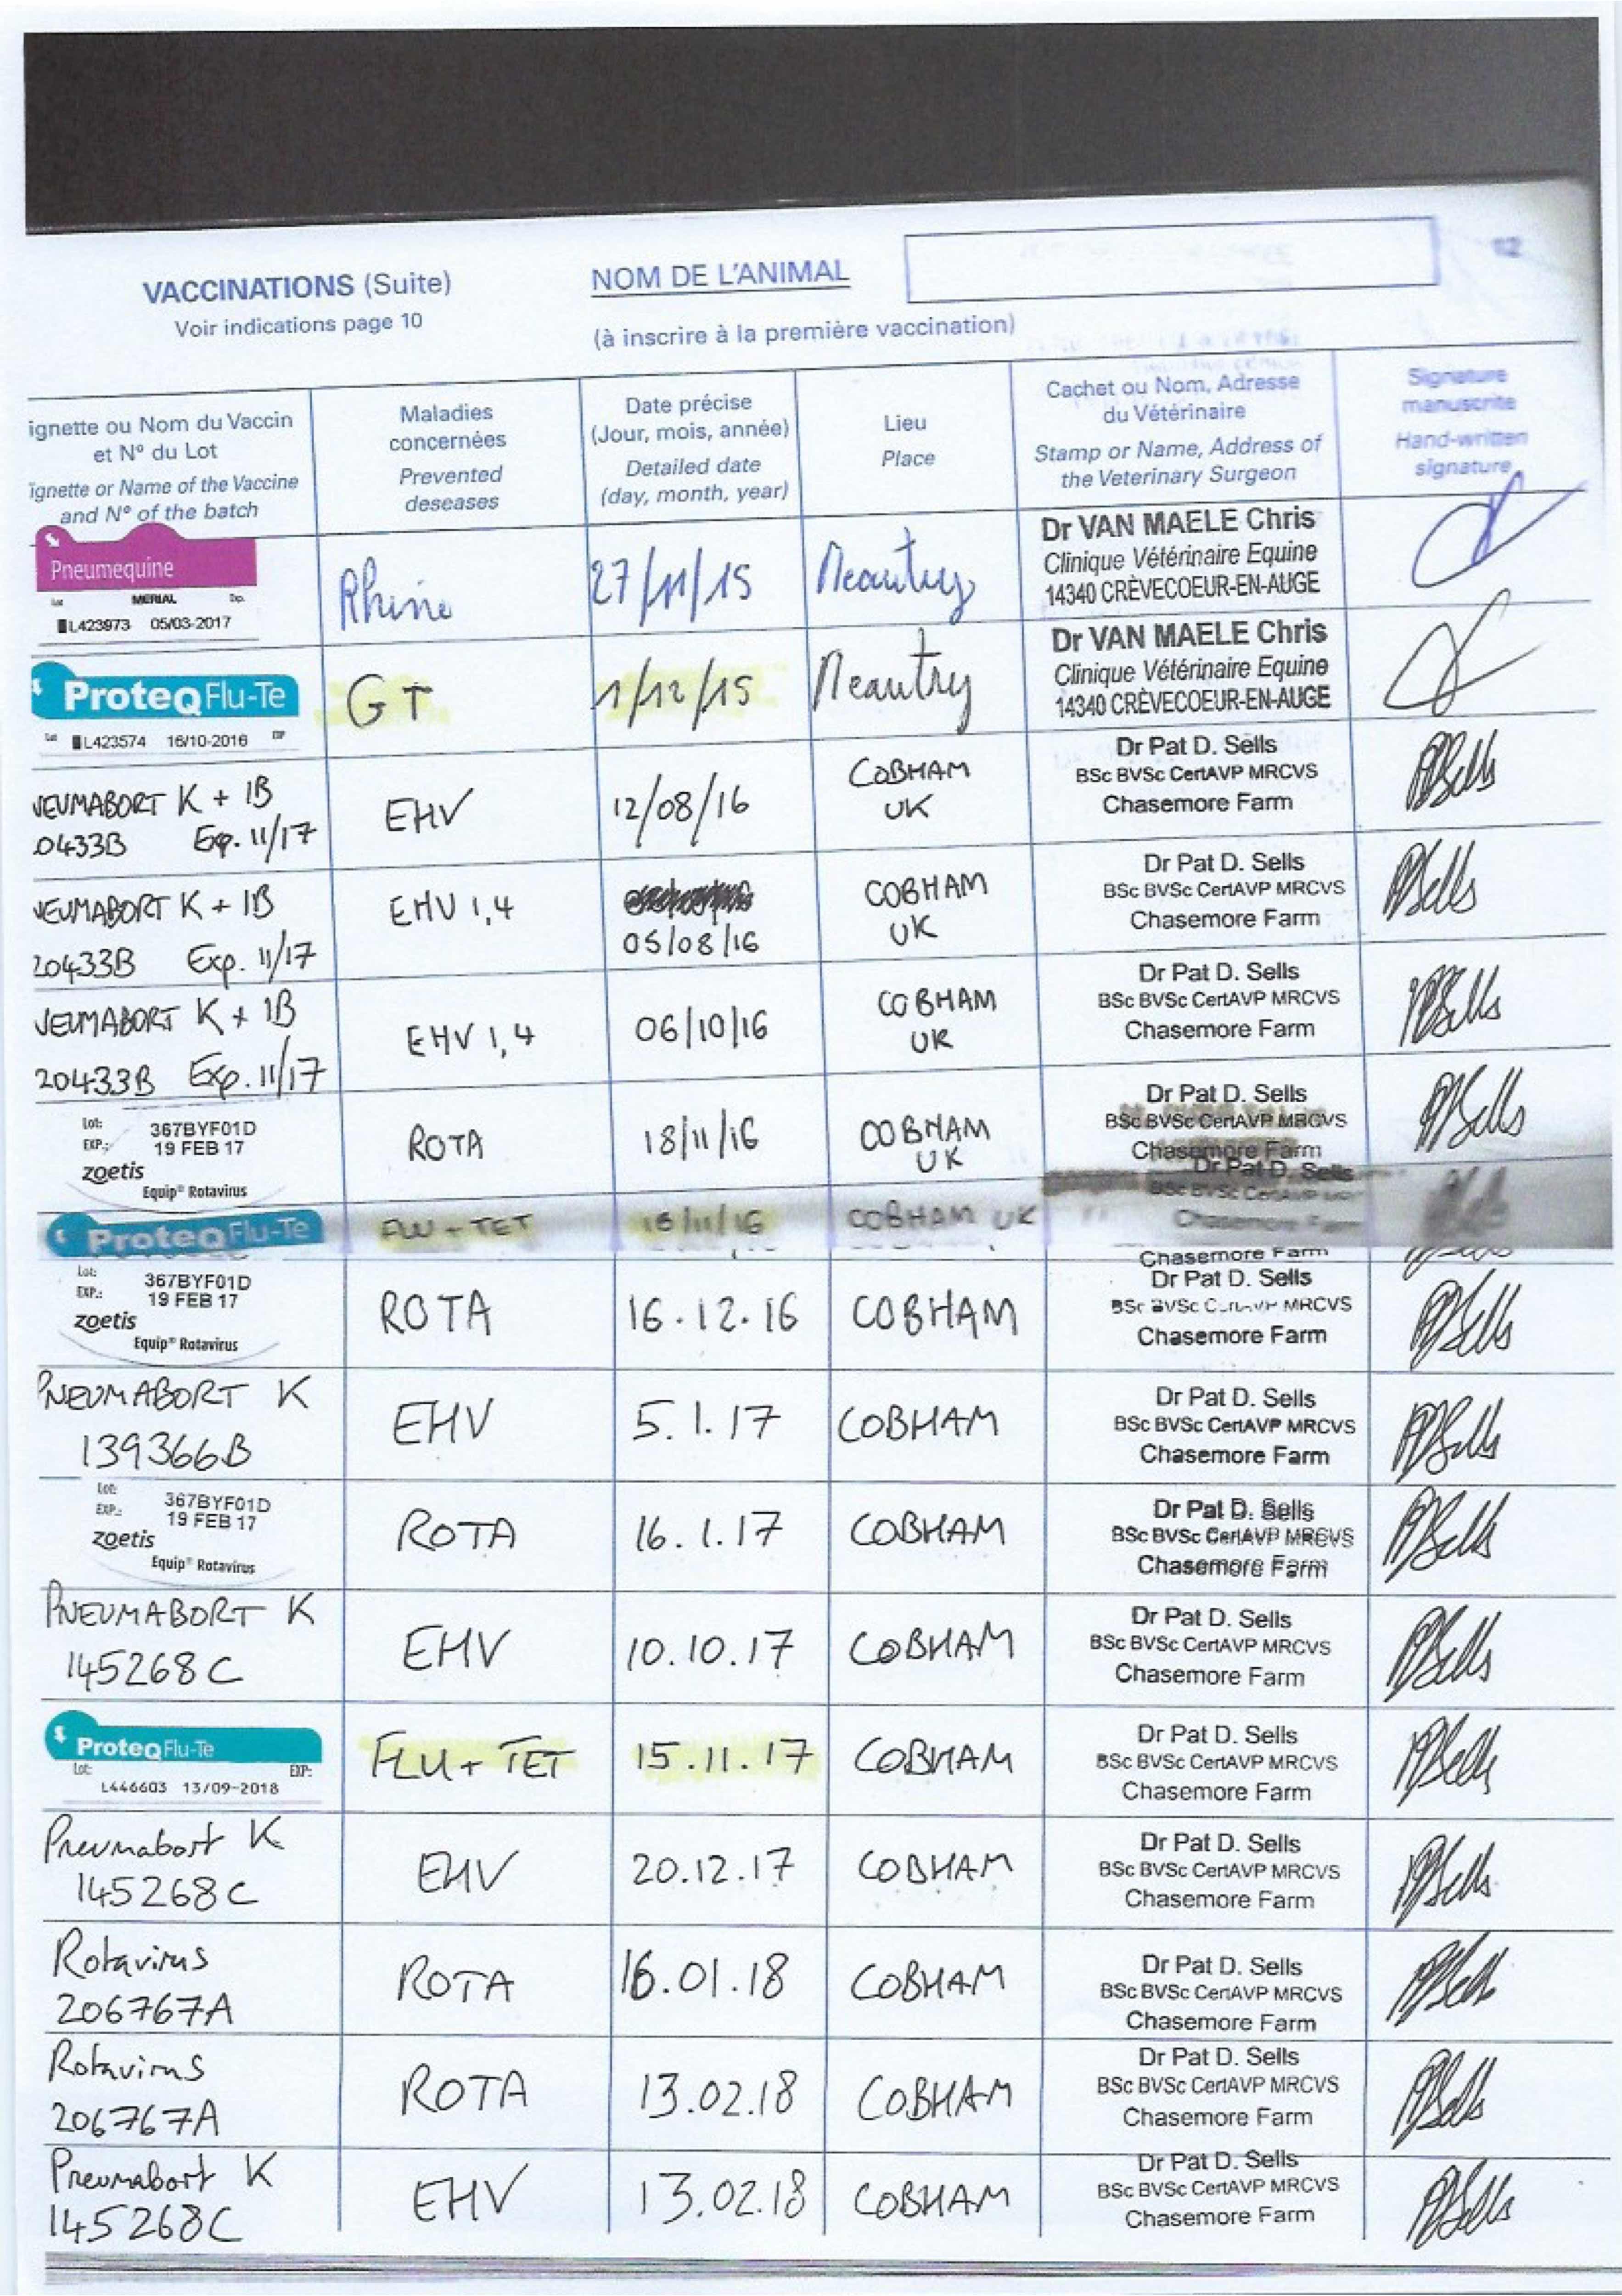 VACCINATIONS (Suite)
Voir indications page 10
NOM DE L'ANIMAL
(à inscrire à la première vaccination)
12
ignette ou Nom du Vaccin
et N° du Lot
ignette or Name of the Vaccine
and N° of the batch
Maladies
concernées
Prevented
deseases
Date précise
(Jour, mois, année)
Detailed date
(day, month, year)
Lieu
Place
Cachet ou Nom, Adresse
du Vétérinaire
Stamp or Name, Address of
the Veterinary Surgeon
Signature
manuscrite
Hand-written
signature
Pneumequine
Lot MERIAL Exp.
L423973 05/03-2017
Rhino
27/11/15
Meautry
Dr VAN MAELE Chris
Clinique Vétérinaire Equine
14340 CRÈVECOEUR-EN-AUGE
ProteqFlu-Te
Lot L423574 16/10-2016 EXP
GT
1/12/15
Meautry
Dr VAN MAELE Chris
Clinique Vétérinaire Equine
14340 CRÈVECOEUR-EN-AUGE
NEUMABORT K + 1B
0433B Exp. 11/17
EHV
12/08/16
COBHAM
UK
Dr Pat D. Sells
BSc BVSc CertAVP MRCVS
Chasemore Farm
NEUMABORT K + 1B
20433B Exp. 11/17
EHV 1,4
05/08/16
COBHAM
UK
Dr Pat D. Sells
BSc BVSc CertAVP MRCVS
Chasemore Farm
NEUMABORT K + 1B
20433B Exp. 11/17
EHV 1,4
06/10/16
COBHAM
UK
Dr Pat D. Sells
BSc BVSc CertAVP MRCVS
Chasemore Farm
Lot: 367BYF01D
EXP.: 19 FEB 17
zoetis
Equip® Rotavirus
ROTA
18/11/16
COBHAM
UK
Dr Pat D. Sells
BSc BVSc CertAVP MRCVS
Chasemore Farm
ProteqFlu-Te
FLU + TET
18/11/16
COBHAM UK
Dr Pat D. Sells
BSc BVSc CertAVP
Chasemore Farm
Chasemore Farm
Lot: 367BYF01D
EXP.: 19 FEB 17
zoetis
Equip® Rotavirus
ROTA
16.12.16
COBHAM
Dr Pat D. Sells
BSc BVSc CertAVP MRCVS
Chasemore Farm
PNEUMABORT K
139366B
EHV
5.1.17
COBHAM
Dr Pat D. Sells
BSc BVSc CertAVP MRCVS
Chasemore Farm
Lot: 367BYF01D
EXP.: 19 FEB 17
zoetis
Equip® Rotavirus
ROTA
16.1.17
COBHAM
Dr Pat D. Sells
BSc BVSc CertAVP MRCVS
Chasemore Farm
PNEUMABORT K
145268C
EHV
10.10.17
COBHAM
Dr Pat D. Sells
BSc BVSc CertAVP MRCVS
Chasemore Farm
ProteqFlu-Te
Lot: EXP:
L446603 13/09-2018
FLU + TET
15.11.17
COBHAM
Dr Pat D. Sells
BSc BVSc CertAVP MRCVS
Chasemore Farm
Pneumabort K
145268C
EHV
20.12.17
COBHAM
Dr Pat D. Sells
BSc BVSc CertAVP MRCVS
Chasemore Farm
Rotavirus
206767A
ROTA
16.01.18
COBHAM
Dr Pat D. Sells
BSc BVSc CertAVP MRCVS
Chasemore Farm
Rotavirus
206767A
ROTA
13.02.18
COBHAM
Dr Pat D. Sells
BSc BVSc CertAVP MRCVS
Chasemore Farm
Pneumabort K
145268C
EHV
13.02.18
COBHAM
Dr Pat D. Sells
BSc BVSc CertAVP MRCVS
Chasemore Farm